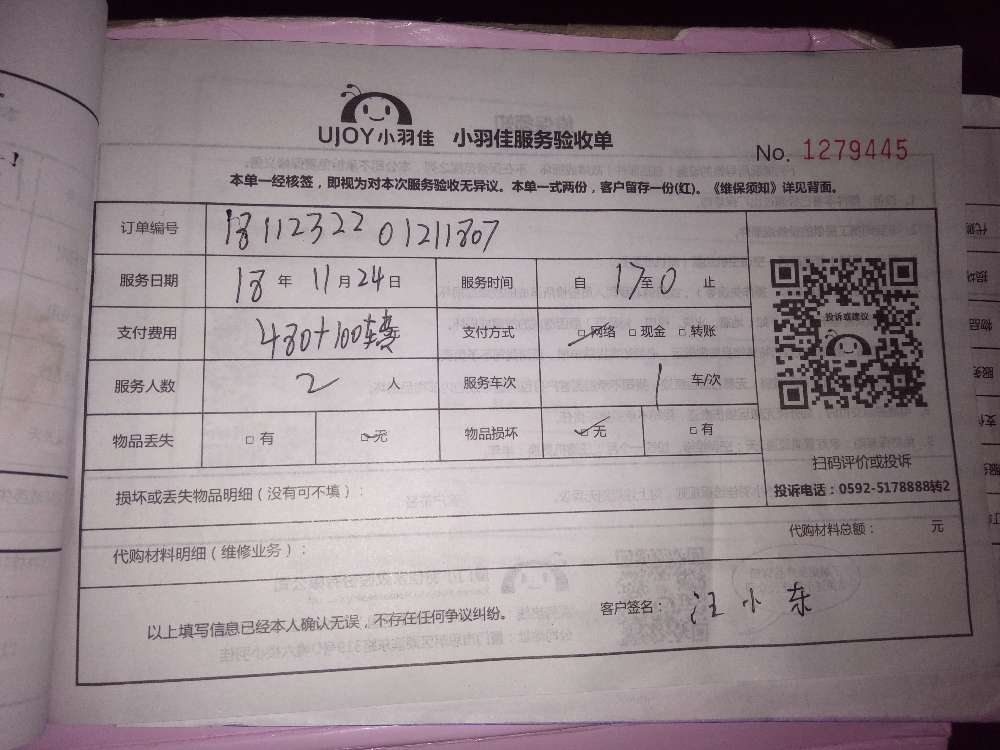 UJOY小羽佳 小羽佳服务验收单
No. 1279445
本单一经核签，即视为对本次服务验收无异议。本单一式两份，客户留存一份(红)。《维保须知》详见背面。
订单编号 1811232201211807
服务日期 18 年 11 月 24 日 服务时间 自 17 至 0 止
支付费用 480+100 支付方式 □网络 □现金 □转账
服务人数 2 人 服务车次 1 车/次
物品丢失 □有 □无 物品损坏 □无 □有
投诉或建议
扫码评价或投诉
投诉电话：0592-5178888转2
损坏或丢失物品明细（没有可不填）：
代购材料明细（维修业务）： 代购材料总额： 元
以上填写信息已经本人确认无误，不存在任何争议纠纷。 客户签名： 汪小东